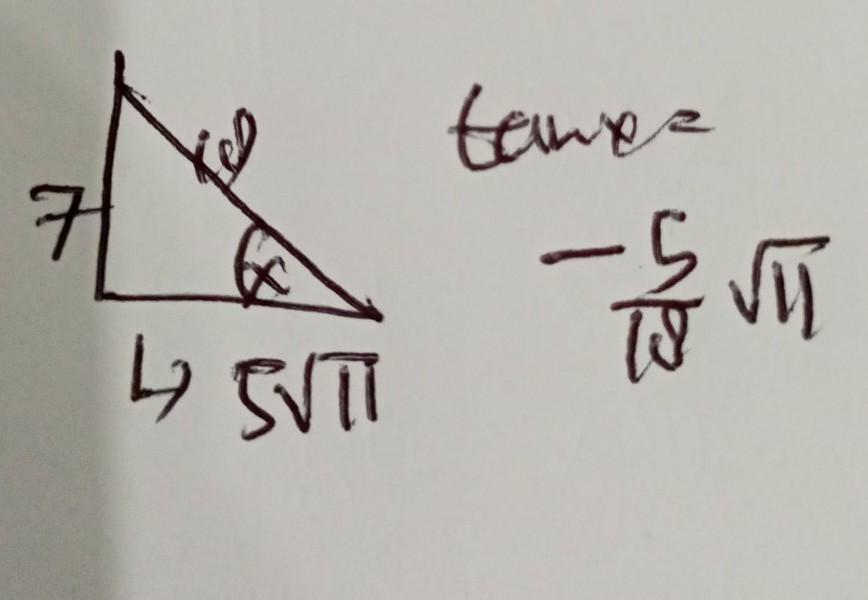 18
7
x
↳ 5√11
tanx=
- 5/18 √11